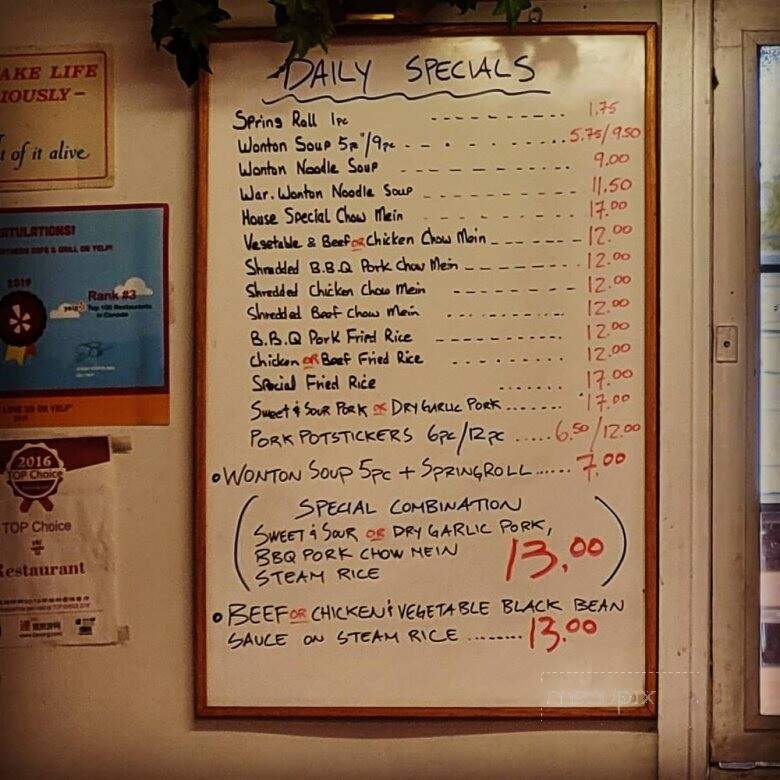 AKE LIFE
IOUSLY –
t of it alive
ATULATIONS!
2019
yelp
Rank #3
Top 100 Restaurants
in Canada
LOVE US ON YELP"
2016
TOP Choice
TOP Choice
Restaurant
DAILY SPECIALS
Spring Roll 1pc ---------- 1.75
Wonton Soup 5pc/9pc ---------- 5.75/9.50
Wonton Noodle Soup ---------- 9.00
War. Wonton Noodle Soup ---------- 11.50
House Special Chow Mein ---------- 17.00
Vegetable & Beef OR Chicken Chow Mein ------- 12.00
Shredded B.B.Q Pork Chow Mein -------- 12.00
Shredded Chicken Chow Mein -------- 12.00
Shredded Beef Chow Mein -------- 12.00
B.B.Q Pork Fried Rice -------- 12.00
Chicken OR Beef Fried Rice -------- 12.00
Special Fried Rice ....... 17.00
Sweet & Sour Pork OR Dry Garlic Pork ....... 17.00
PORK POTSTICKERS 6pc/12pc ..... 6.50/12.00
• WONTON SOUP 5pc + SPRINGROLL ...... 7.00
(SPECIAL COMBINATION
SWEET & SOUR OR DRY GARLIC PORK,
BBQ PORK CHOW MEIN 13.00
STEAM RICE)
• BEEF OR CHICKEN & VEGETABLE BLACK BEAN
SAUCE ON STEAM RICE ........ 13.00
menupix